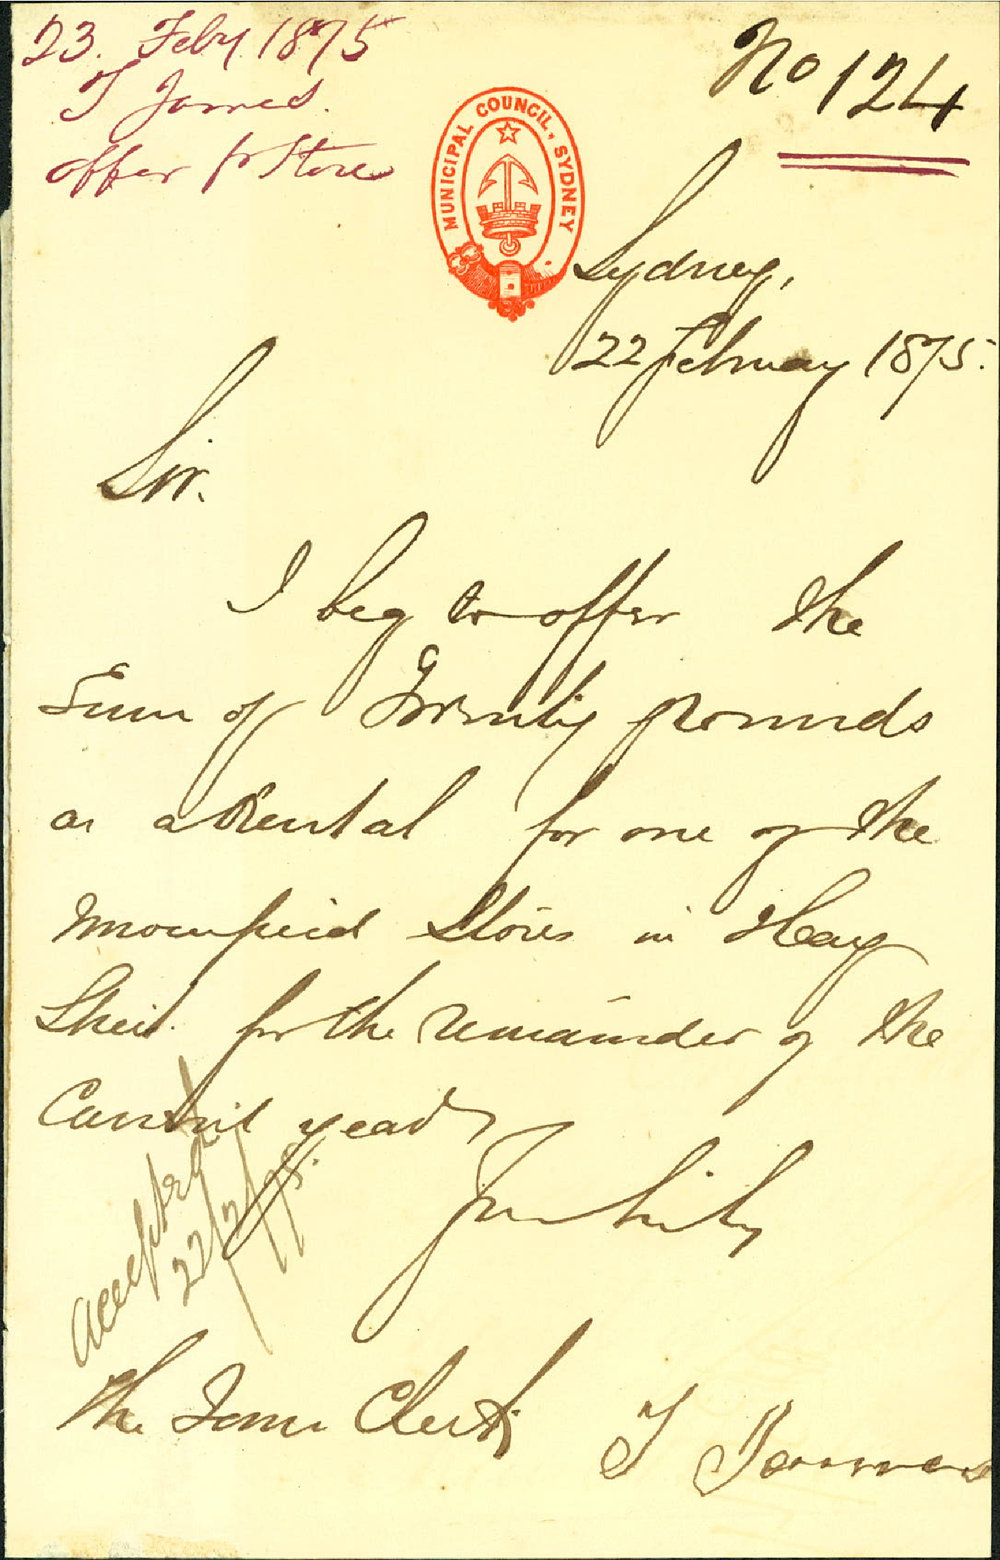 23. Feby. 1875
T James.
offer fr Store
No 124
MUNICIPAL COUNCIL, SYDNEY
Sydney,
22 February 1875.
Sir.
I beg to offer the
Sum of Twenty pounds
as a Rental for one of the
unoccupied Stores in Hay
Street for the remainder of the
Current year
Yours truly
accepted
22/2/75.
The Town Clerk
T James